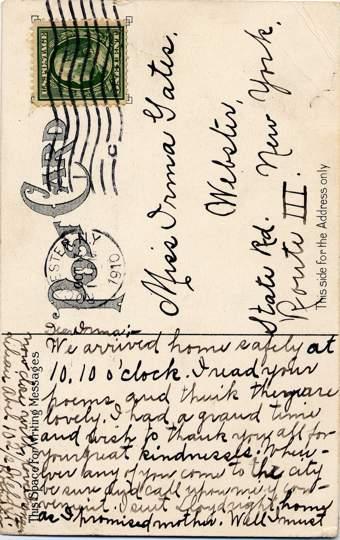 U.S. POSTAGE
POST CARD
1910
Miss Irma Gates,
Webster,
State Rd. New York.
Route III.
This side for the Address only
This Space for Writing Messages
Dear Irma;-
We arrived home safely at
10,10 o'clock. I read your
poems, and think they are
lovely. I had a grand time
and wish to thank you all for
your great kindnesses. When-
ever any of you come to the city
be sure and call upon me if con-
venient. I sent Lloyd right home
as I promised mother. Well I must